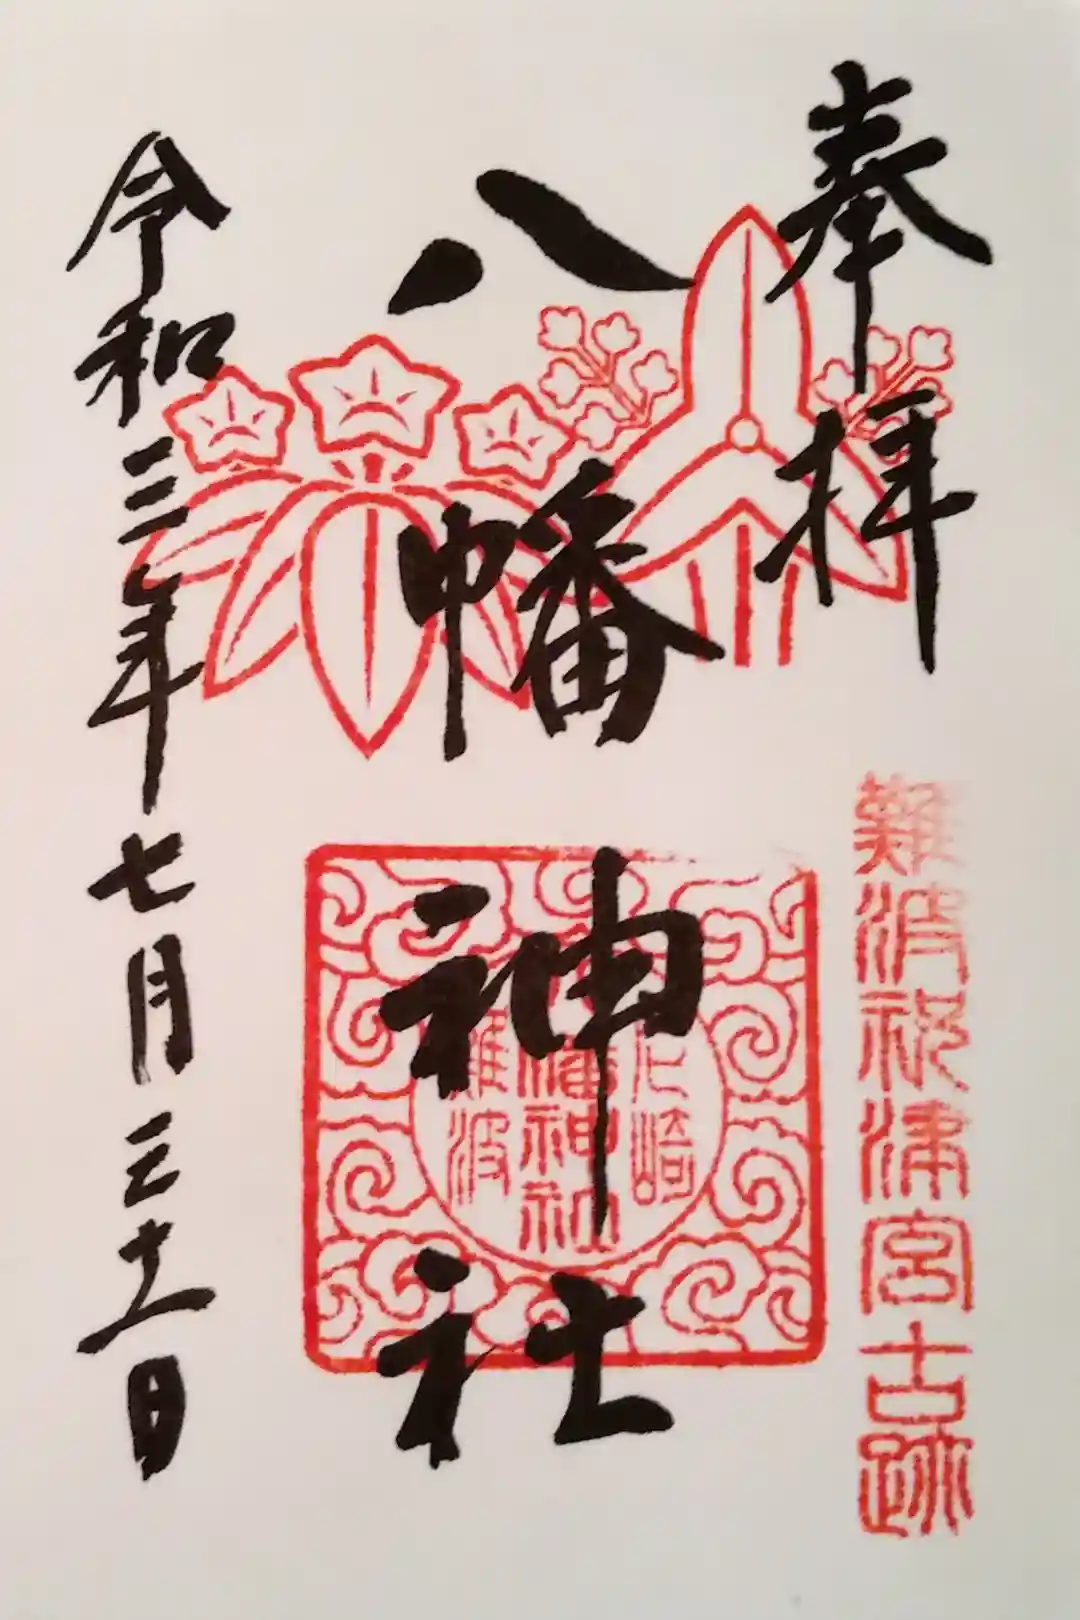 奉拝
難波祝津宮古跡
八幡神社
尼崎
八幡神社
難波
令和三年七月三十一日